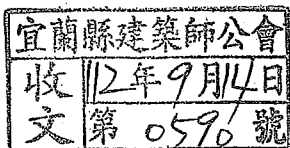 宜蘭縣建築師公會
收文
112年9月14日
第0590號